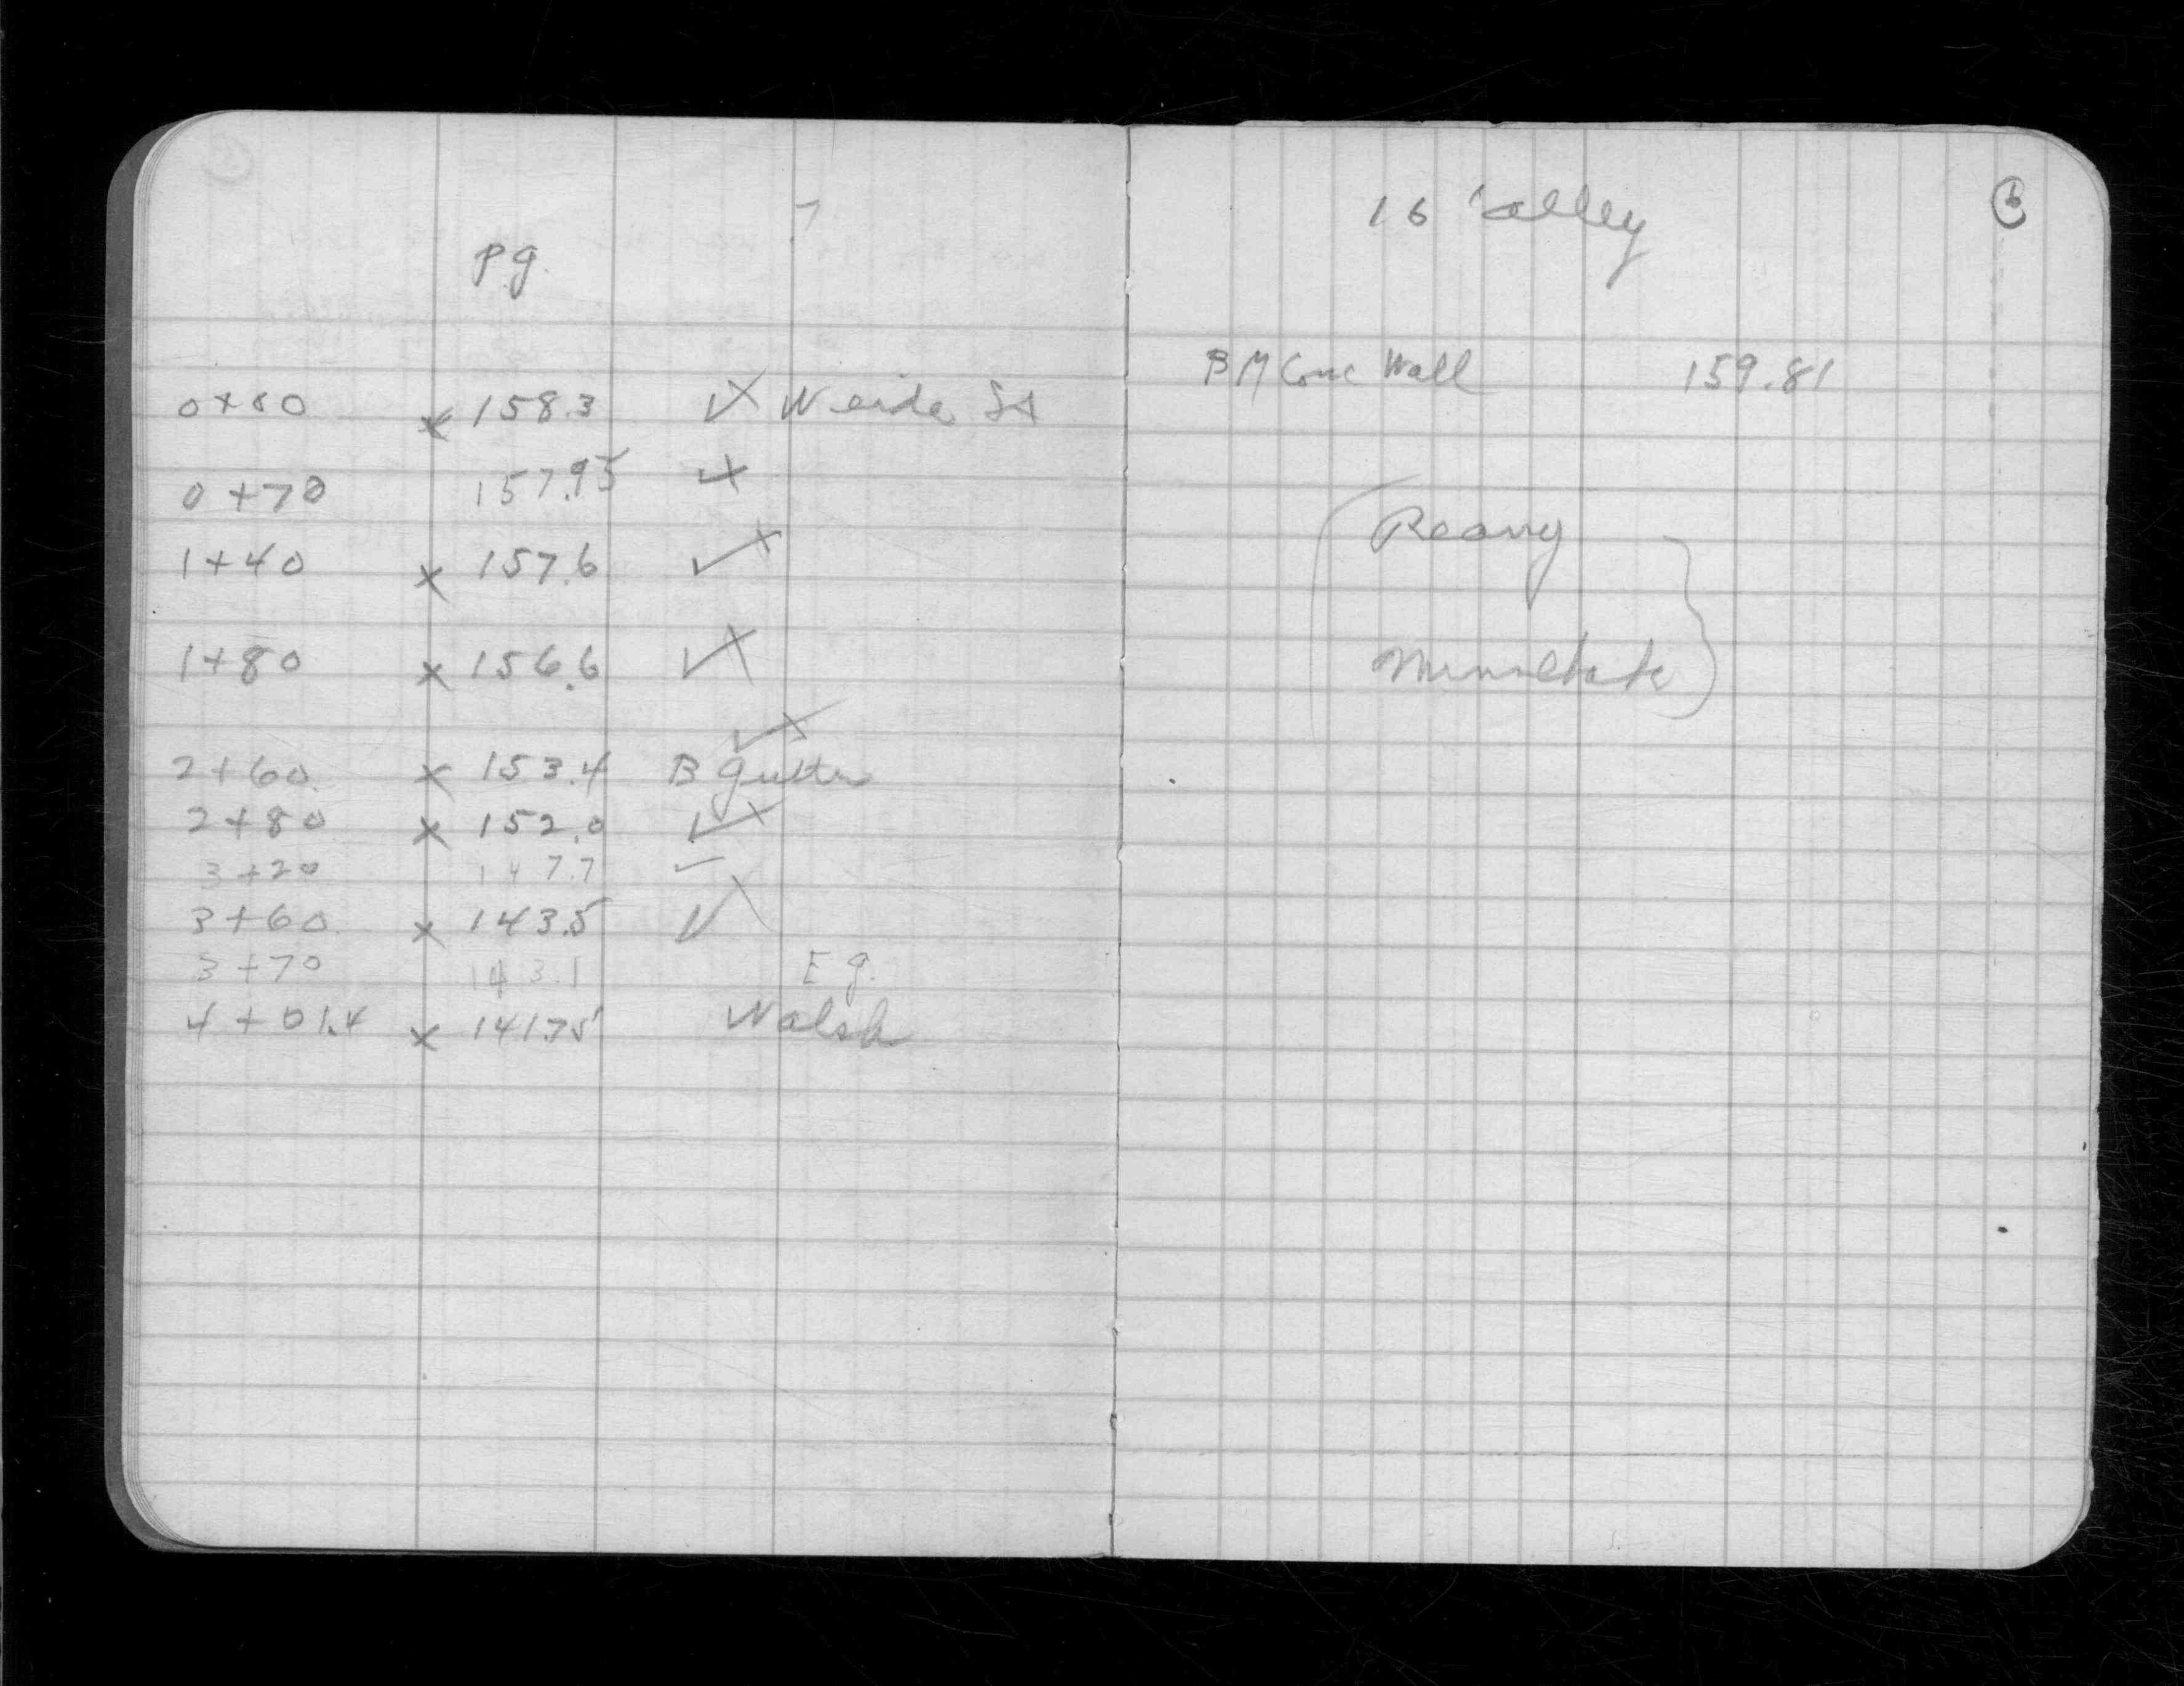 P.g.
0+00 × 158.3 ✓× Weide St
0+70 157.95 ✓×
1+40 × 157.6 ✓×
1+80 × 156.6 ✓×
✓×
2+60 × 153.4 B Gutter
2+80 × 152.0 ✓×
3+20 147.7 ✓
3+60 × 143.5 ✓
3+70 143.1 E g.
4+01.4 × 141.75 Walsh
16' alley
6
BM Conc Wall 159.81
Reany
Minnehaha